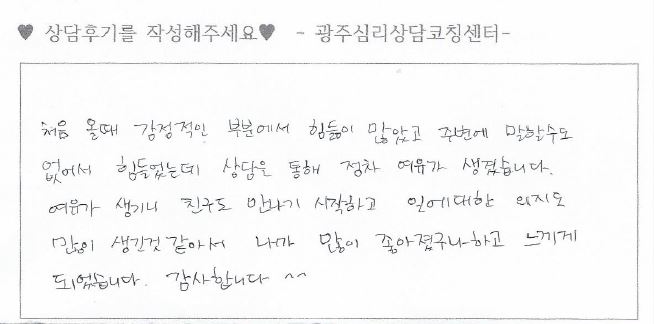 ♥ 상담후기를 작성해주세요♥ - 광주심리상담코칭센터-
처음 올때 감정적인 부분에서 힘듦이 많았고 주변에 말할수도
없어서 힘들었는데 상담은 통해 점차 여유가 생겼습니다.
여유가 생기니 친구도 만나기 시작하고 일에대한 의지도
많이 생긴것 같아서 내가 많이 좋아졌구나하고 느끼게
되었습니다. 감사합니다 ^^